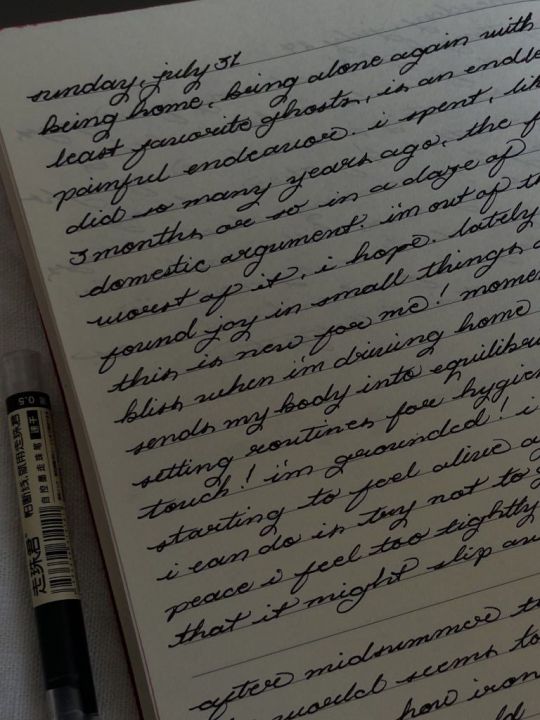 sunday, july 31
being home, being alone again with
least favorite ghosts, is an endle
painful endeavor. i spent, lik
did so many years ago, the f
3 months or so in a daze of
domestic argument. i'm out of th
worst of it, i hope. lately
found joy in small things a
this is new for me! momen
bliss when i'm driving home
sends my body into equilibri
setting routines for hygien
touch! i'm grounded! i
starting to feel alive a
i can do is try not to g
peace i feel too tightly
that it might slip aw
after midsummer t
world seems to
how iron
0.5
走珠君
帕断线,就用走珠君
自控墨走珠笔